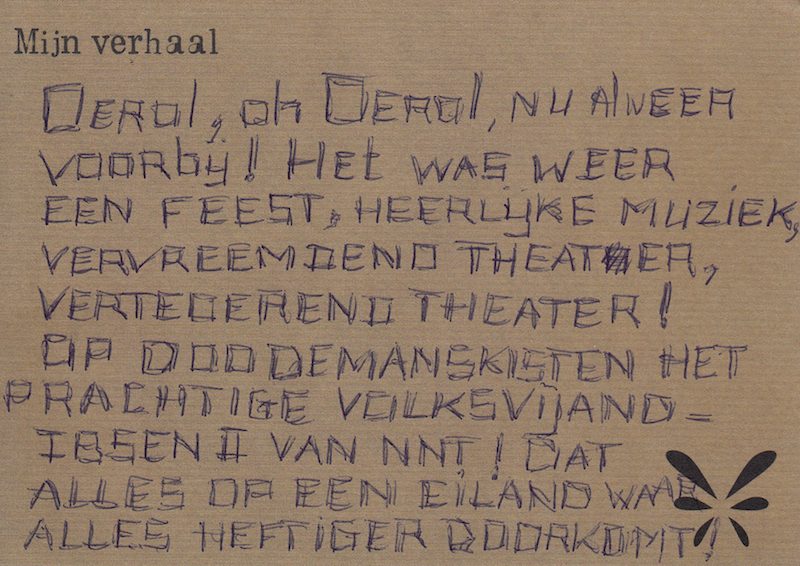 Mijn verhaal
Oerol, oh Oerol, nu alweer
voorbij! Het was weer
EEN FEEST, HEERLIJKE MUZIEK,
VERVREEMDEND THEATER,
VERTEDEREND THEATER!
OP DOODEMANSKISTEN HET
PRACHTIGE VOLKSVIJAND =
IBSEN II VAN NNT,! DAT
ALLES OP EEN EILAND WAAR
ALLES HEFTIGER DOORKOMT!